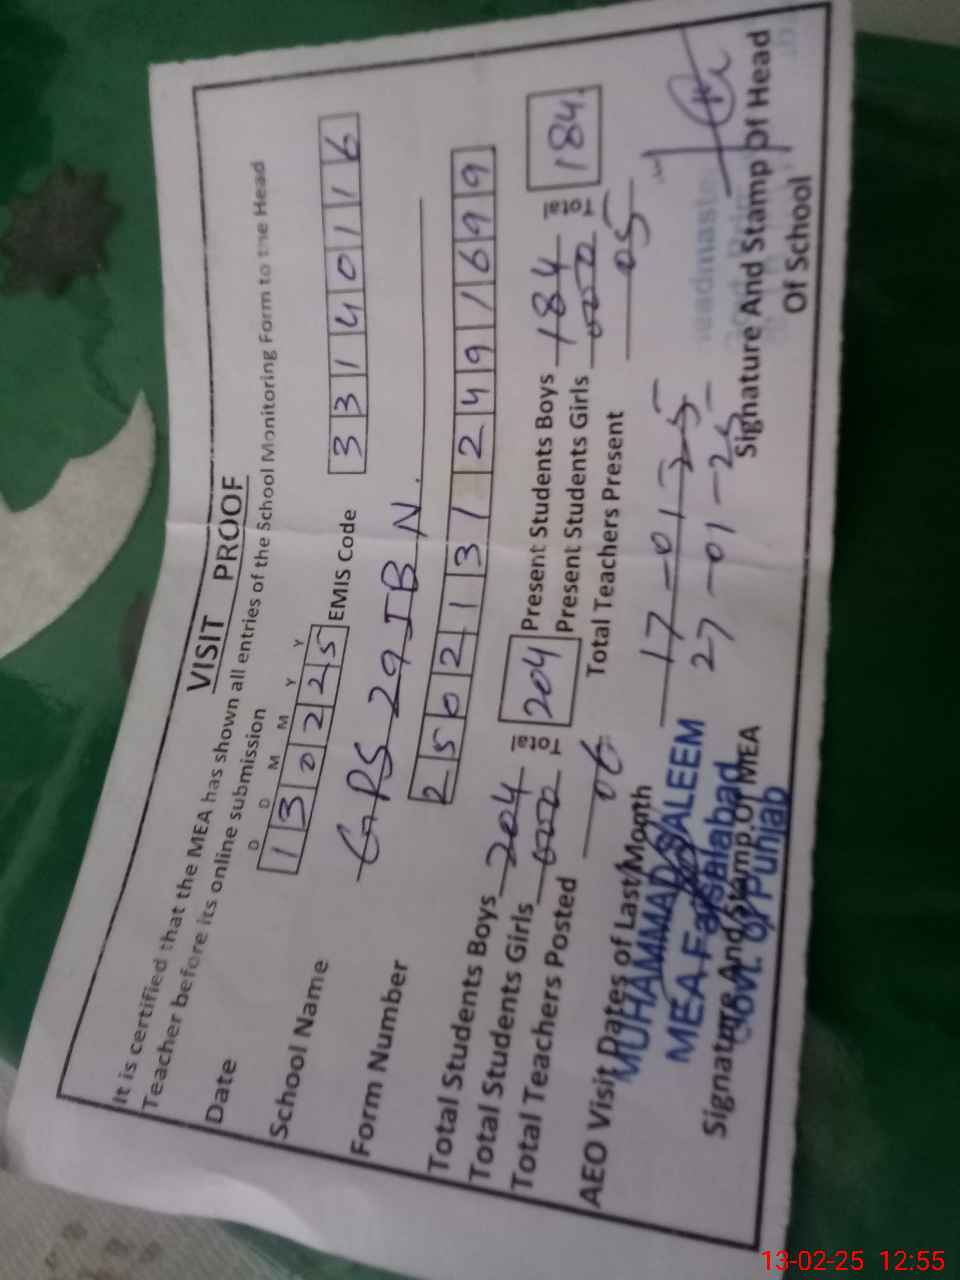 VISIT PROOF
It is certified that the MEA has shown all entries of the School Monitoring Form to the Head
Teacher before its online submission
D D M M Y Y
Date 1 3 0 2 2 5 EMIS Code 3 3 1 4 0 1 1 6
School Name GPS 29 JB N.
Form Number 2 5 0 2 1 3 1 2 4 9 1 6 9 9
Total Students Boys 204 Total 204 Present Students Boys 184 Total 184
Total Students Girls 000 Present Students Girls 000
Total Teachers Posted 06 Total Teachers Present 05
AEO Visit Dates of Last Month 17-01-25
27-01-25
MUHAMMAD SALEEM
MEA Faisalabad
Govt. of Punjab
Signature And Stamp Of MEA
Signature And Stamp Of Head
Of School
13-02-25 12:55